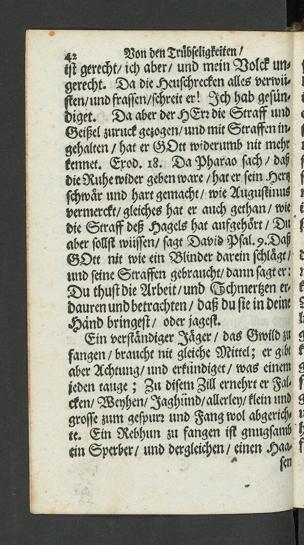 42 Von den Trübseligkeiten/
ist gerecht/ ich aber/ und mein Volck un-
gerecht. Da die Heuschrecken alles verwü-
sten/ und frassen/ schreit er! Ich hab gesün-
diget. Da aber der HErr die Straff und
Geißel zuruck gezogen/ und mit Straffen in-
gehalten/ hat er GOtt widerumb nit mehr
kennet. Exod. 18. Da Pharao sach/ daß
die Ruhe wider geben ware/ hat er sein Hertz
schwär und hart gemacht/ wie Augustinus
vermerckt/ gleiches hat er auch gethan/ wie
die Straff deß Hagels hat aufgehört/ Du
aber sollst wüssen/ sagt David Psal. 9. Daß
GOtt nit wie ein Blinder darein schlägt/
und seine Straffen gebraucht/ dann sagt er:
Du thust die Arbeit/ und Schmertzen er-
dauren und betrachten/ daß du sie in deine
Händ bringest/ oder jagest.
Ein verständiger Jäger/ das Gwild zu
fangen/ braucht nit gleiche Mittel; er gibt
aber Achtung/ und erkündiget/ was einem
jeden tauge; Zu disem Zill ernehrt er Fal-
cken/ Weyhen/ Jaghünd/ allerley/ klein und
grosse zum gespurr und Fang wol abgerich-
te. Ein Rebhun zu fangen ist gnugsamb
ein Sperber/ und dergleichen/ einen Haa-
sen